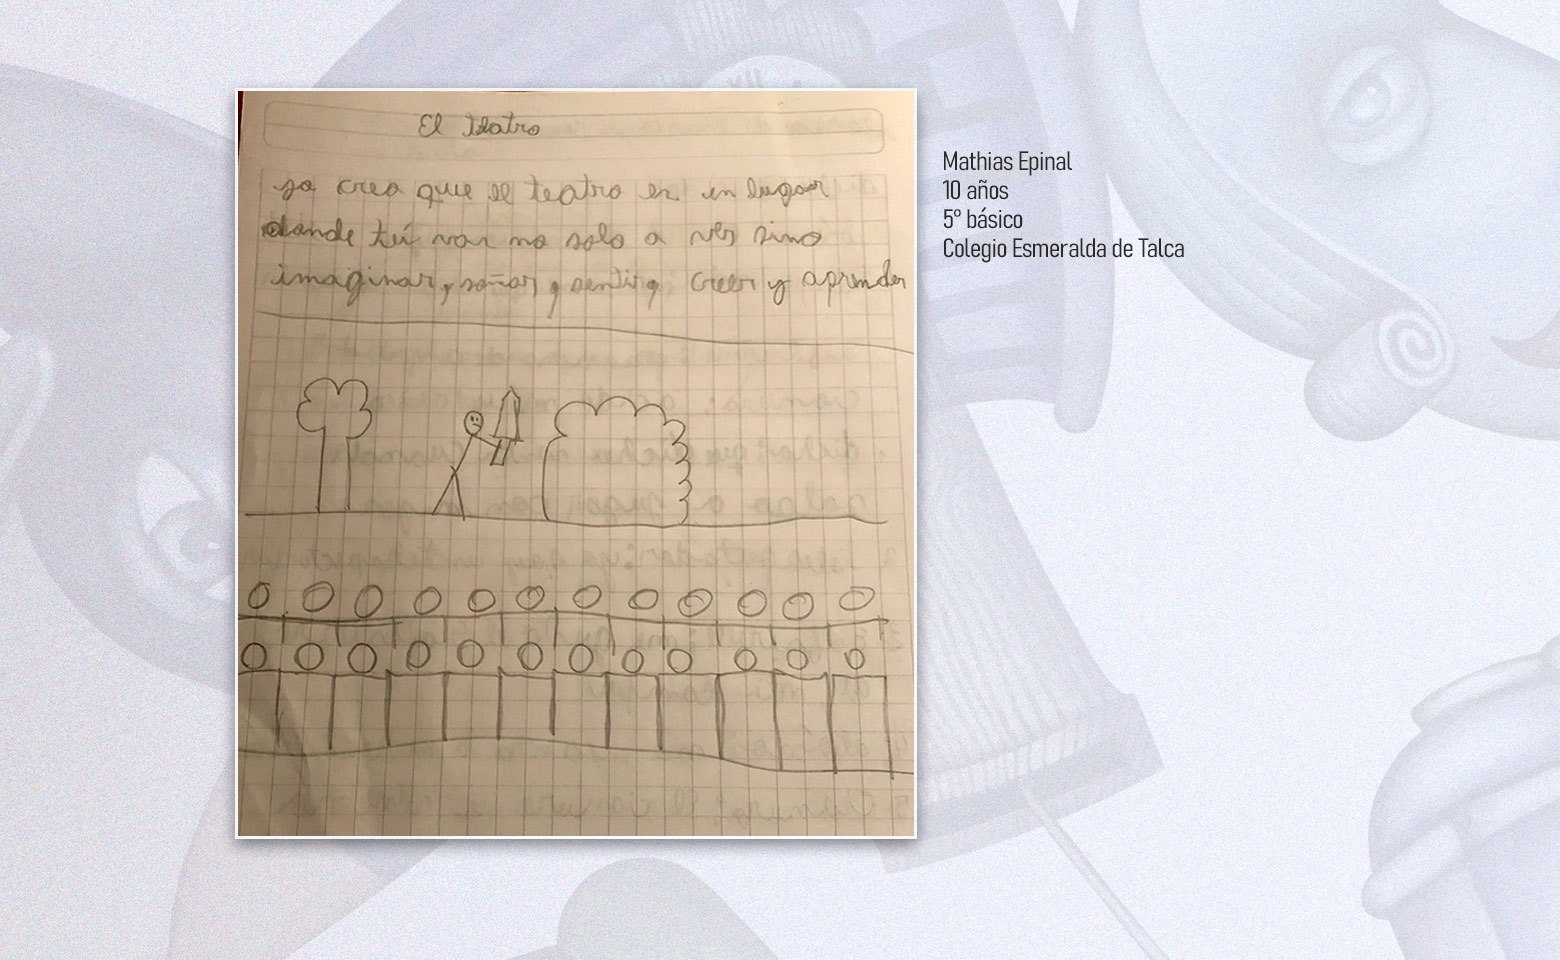 El teatro
yo creo que el teatro es un lugar
donde tú vas no solo a ver sino
imaginar, soñar, sentir, creer y aprender
Mathias Epinal
10 años
5° básico
Colegio Esmeralda de Talca